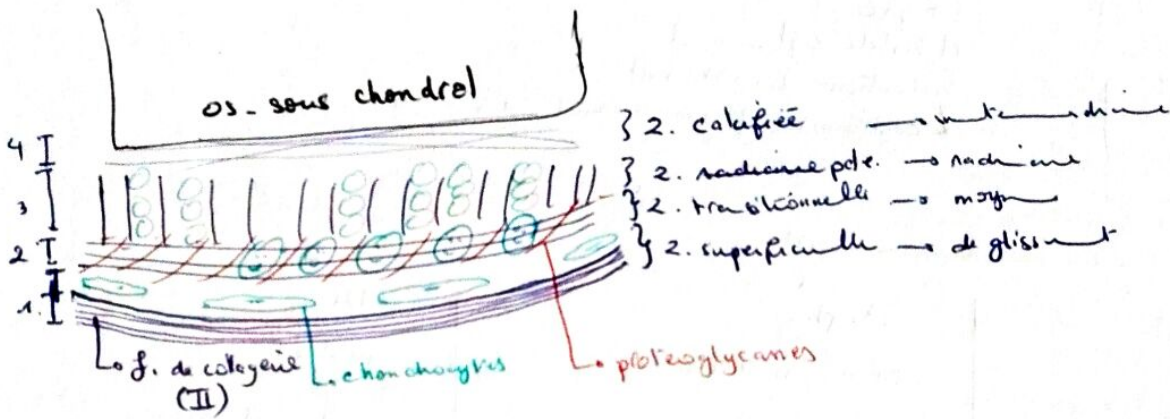 os - sous chondral
4
3
2
1.
} 2. calcifiée →
} 2. radiaire pfde. → radiaire
} 2. transitionnelle → moyen
} 2. superficielle → de glissement
f. de collagène
(II)
chondrocytes
proteoglycanes